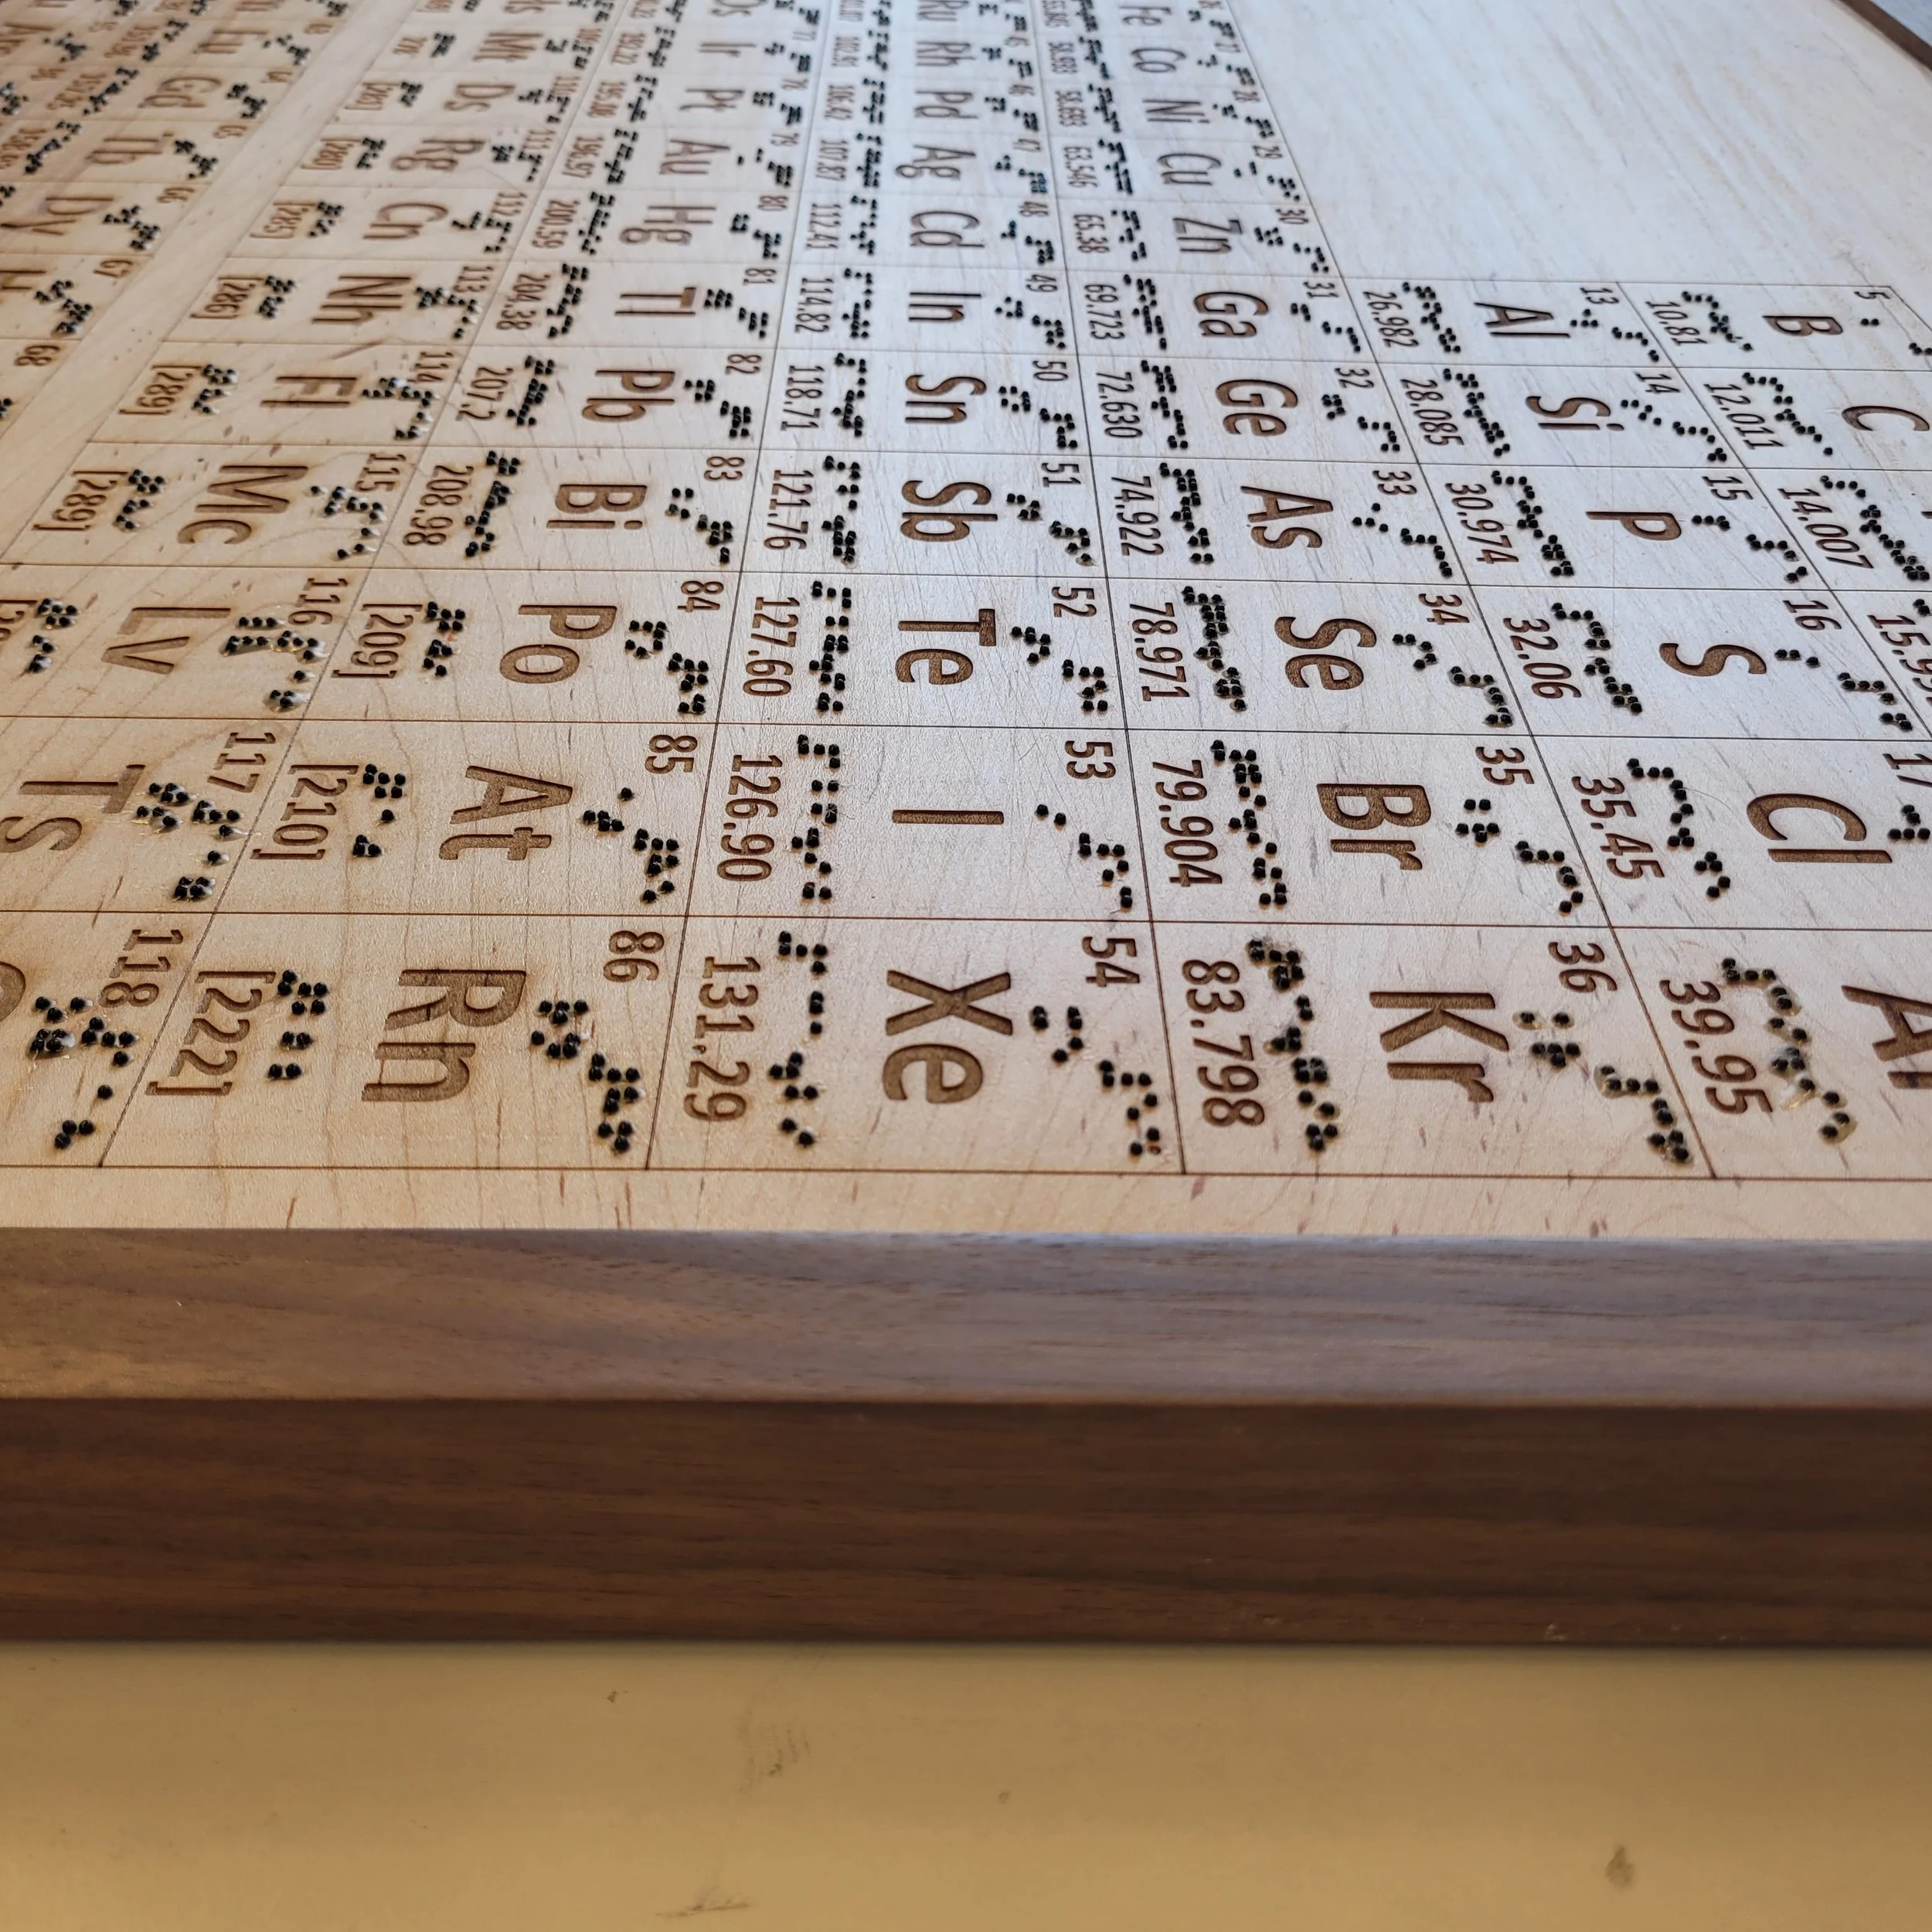 5
B
10.81
C
12.011
14.007
13
Al
26.982
14
Si
28.085
15
P
30.974
16
S
32.06
17
Cl
35.45
39.95
Fe
Co
58.933
28
Ni
58.693
29
Cu
63.546
30
Zn
65.38
31
Ga
69.723
32
Ge
72.630
33
As
74.922
34
Se
78.971
35
Br
79.904
36
Kr
83.798
Ru
Rh
46
Pd
106.42
47
Ag
107.87
48
Cd
112.41
49
In
114.82
50
Sn
118.71
51
Sb
121.76
52
Te
127.60
53
I
126.90
54
Xe
131.29
Os
77
Ir
192.22
78
Pt
195.08
79
Au
196.97
80
Hg
200.59
81
Tl
204.38
82
Pb
207.2
83
Bi
208.98
84
Po
[209]
85
At
[210]
86
Rn
[222]
Mt
Ds
[281]
Rg
112
Cn
[285]
113
Nh
[286]
114
Fl
[289]
115
Mc
[289]
116
Lv
117
Ts
118
Eu
Gd
65
Tb
66
Dy
67
68